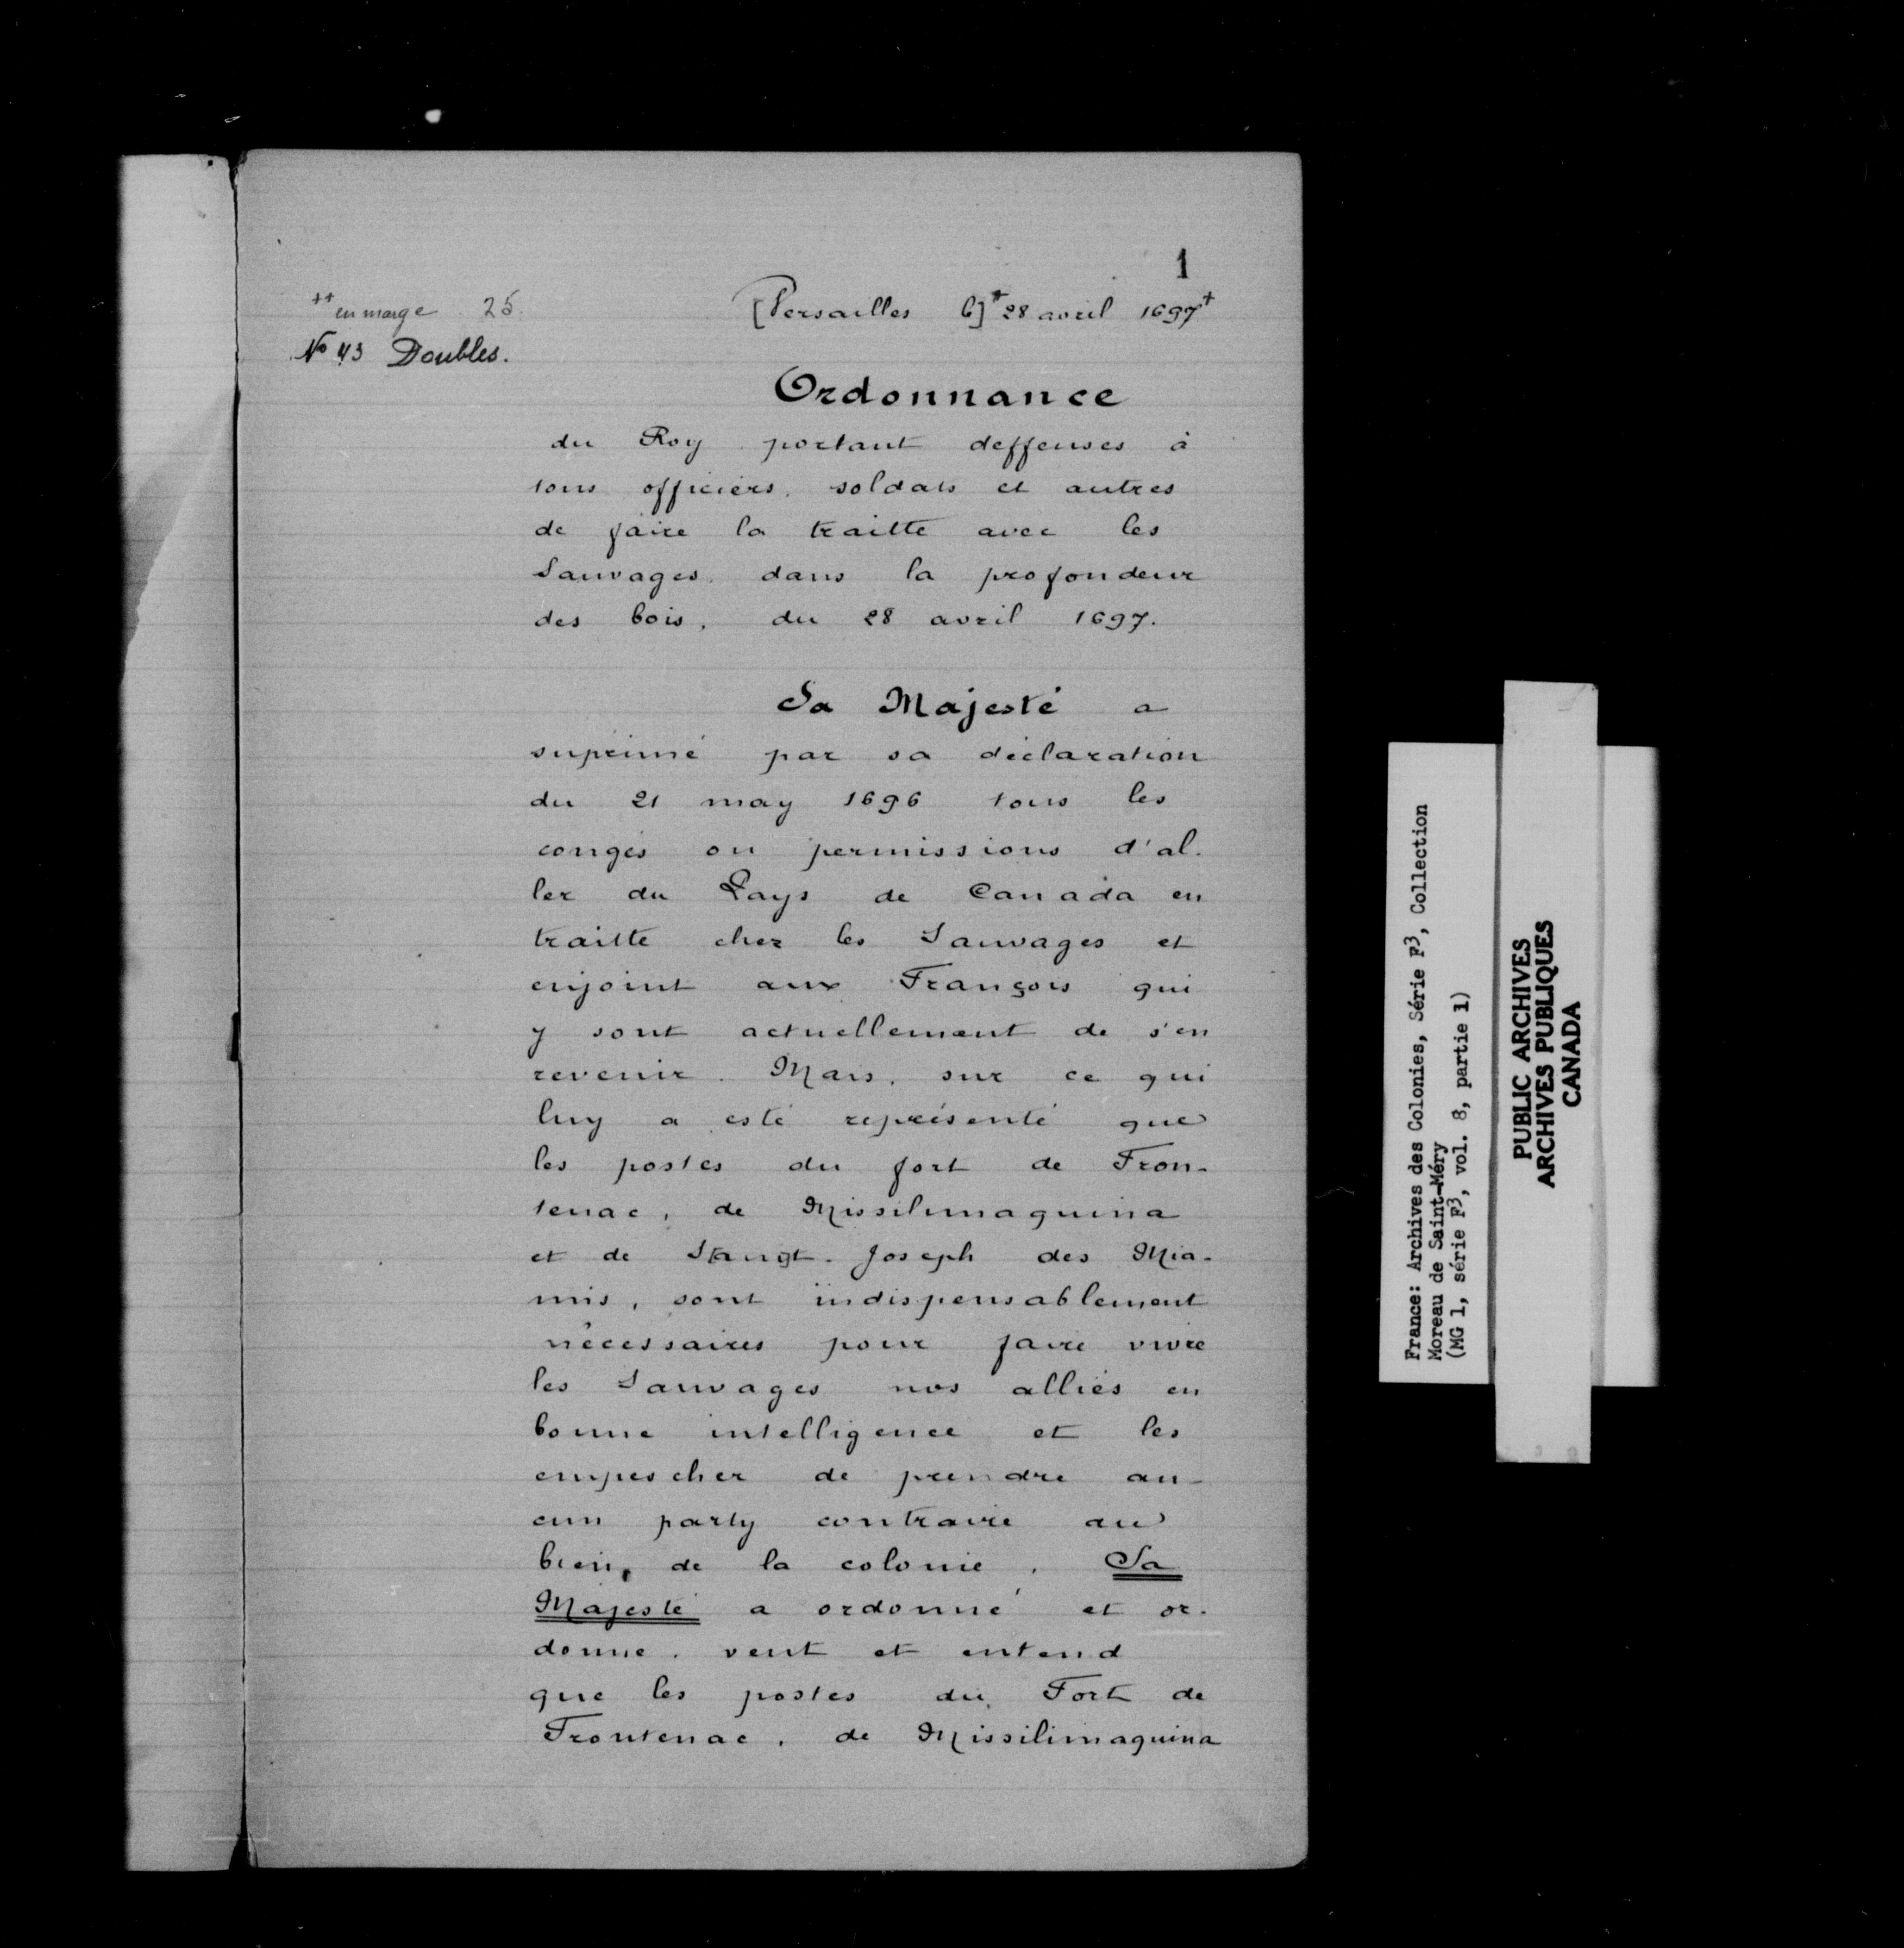 1
++ en marge 25.
[Versailles 6]+ 28 avril 1697+
No 43 Doubles.
Ordonnance
du Roy portant deffenses à
tous officiers, soldats et autres
de faire la traitte avec les
Sauvages, dans la profondeur
des bois, du 28 avril 1697.
Sa Majesté a
suprimé par sa déclaration
du 21 may 1696 tous les
congés ou permissions d'al-
ler du Pays de Canada en
traitte chez les Sauvages et
enjoint aux François qui
y sont actuellement de s'en
revenir. Mais, sur ce qui
luy a esté représenté que
les postes du fort de Fron-
tenac, de Missilimaquina
et de St Joseph des Mia-
mis, sont indispensablement
nécessaires pour faire vivre
les Sauvages nos alliés en
bonne intelligence et les
empescher de prendre au-
cun party contraire au
bien, de la colonie, Sa
Majesté a ordonné et or-
donne, veut et entend
que les postes du Fort de
Frontenac, de Missilimaquina
France: Archives des Colonies, Série F3, Collection
Moreau de Saint-Méry
(MG 1, série F3, vol. 8, partie 1)
PUBLIC ARCHIVES
ARCHIVES PUBLIQUES
CANADA